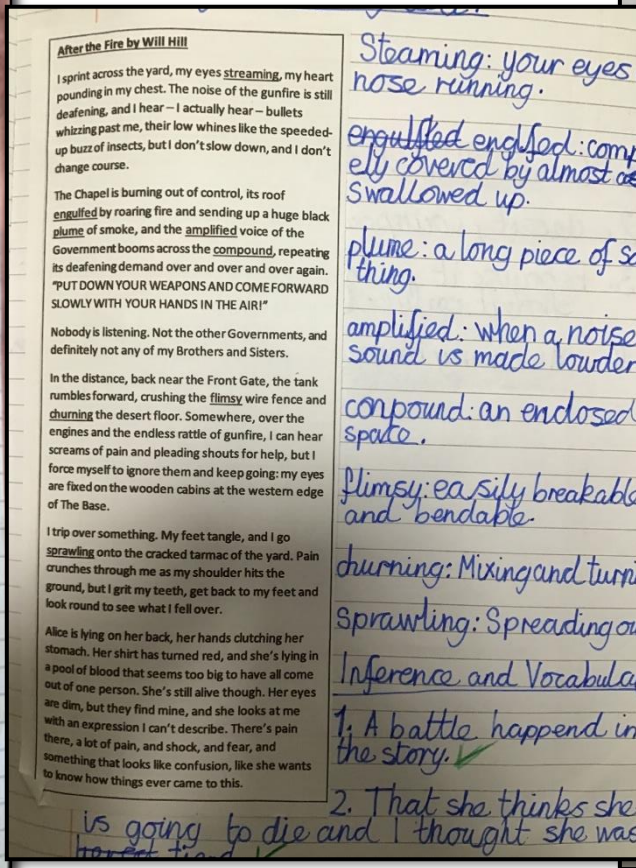 After the Fire by Will Hill
I sprint across the yard, my eyes streaming, my heart
pounding in my chest. The noise of the gunfire is still
deafening, and I hear – I actually hear – bullets
whizzing past me, their low whines like the speeded-
up buzz of insects, but I don't slow down, and I don't
change course.
The Chapel is burning out of control, its roof
engulfed by roaring fire and sending up a huge black
plume of smoke, and the amplified voice of the
Government booms across the compound, repeating
its deafening demand over and over and over again.
"PUT DOWN YOUR WEAPONS AND COME FORWARD
SLOWLY WITH YOUR HANDS IN THE AIR!"
Nobody is listening. Not the other Governments, and
definitely not any of my Brothers and Sisters.
In the distance, back near the Front Gate, the tank
rumbles forward, crushing the flimsy wire fence and
churning the desert floor. Somewhere, over the
engines and the endless rattle of gunfire, I can hear
screams of pain and pleading shouts for help, but I
force myself to ignore them and keep going: my eyes
are fixed on the wooden cabins at the western edge
of The Base.
I trip over something. My feet tangle, and I go
sprawling onto the cracked tarmac of the yard. Pain
crunches through me as my shoulder hits the
ground, but I grit my teeth, get back to my feet and
look round to see what I fell over.
Alice is lying on her back, her hands clutching her
stomach. Her shirt has turned red, and she's lying in
a pool of blood that seems too big to have all come
out of one person. She's still alive though. Her eyes
are dim, but they find mine, and she looks at me
with an expression I can't describe. There's pain
there, a lot of pain, and shock, and fear, and
something that looks like confusion, like she wants
to know how things ever came to this.
Steaming: your eyes
nose running.
engulfted engulfed: comp
ely covered by almost
swallowed up.
plume: a long piece of so
thing.
amplified: when a noise
sound is made lowder
conpound: an enclosed
space.
flimsy: easily breakable
and bendable.
churning: Mixing and turni
Sprawling: Spreading ou
Inference and Vocabula
1. A battle happend in
the story.
2. That she thinks she
is going to die and I thought she was